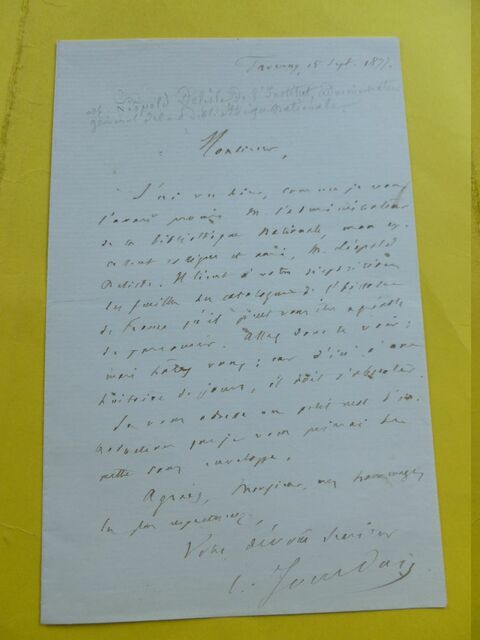 Taverny 15 Sept. 1877.
Léopold Delisle de l'Institut, administrateur
général de la bibliothèque nationale
Monsieur,
J'ai vu hier, comme je vous
l'avais promis M. l'administrateur
de la Bibliothèque Nationale, mon ex-
cellent collègue et ami, M. Léopold
Delisle. Il tient à votre disposition
les feuilles du catalogue de l'histoire
de France qu'il peut vous être agréable
de parcourir. Allez donc le voir;
mais hâtez vous; car d'ici à une
huitaine de jours, il doit s'absenter.
Je vous adresse un petit mot d'in-
troduction que je vous prierai de
mettre sous enveloppe.
Agréez, Monsieur, mes hommages
les plus respectueux,
Votre dévoué serviteur
C. Jourdain